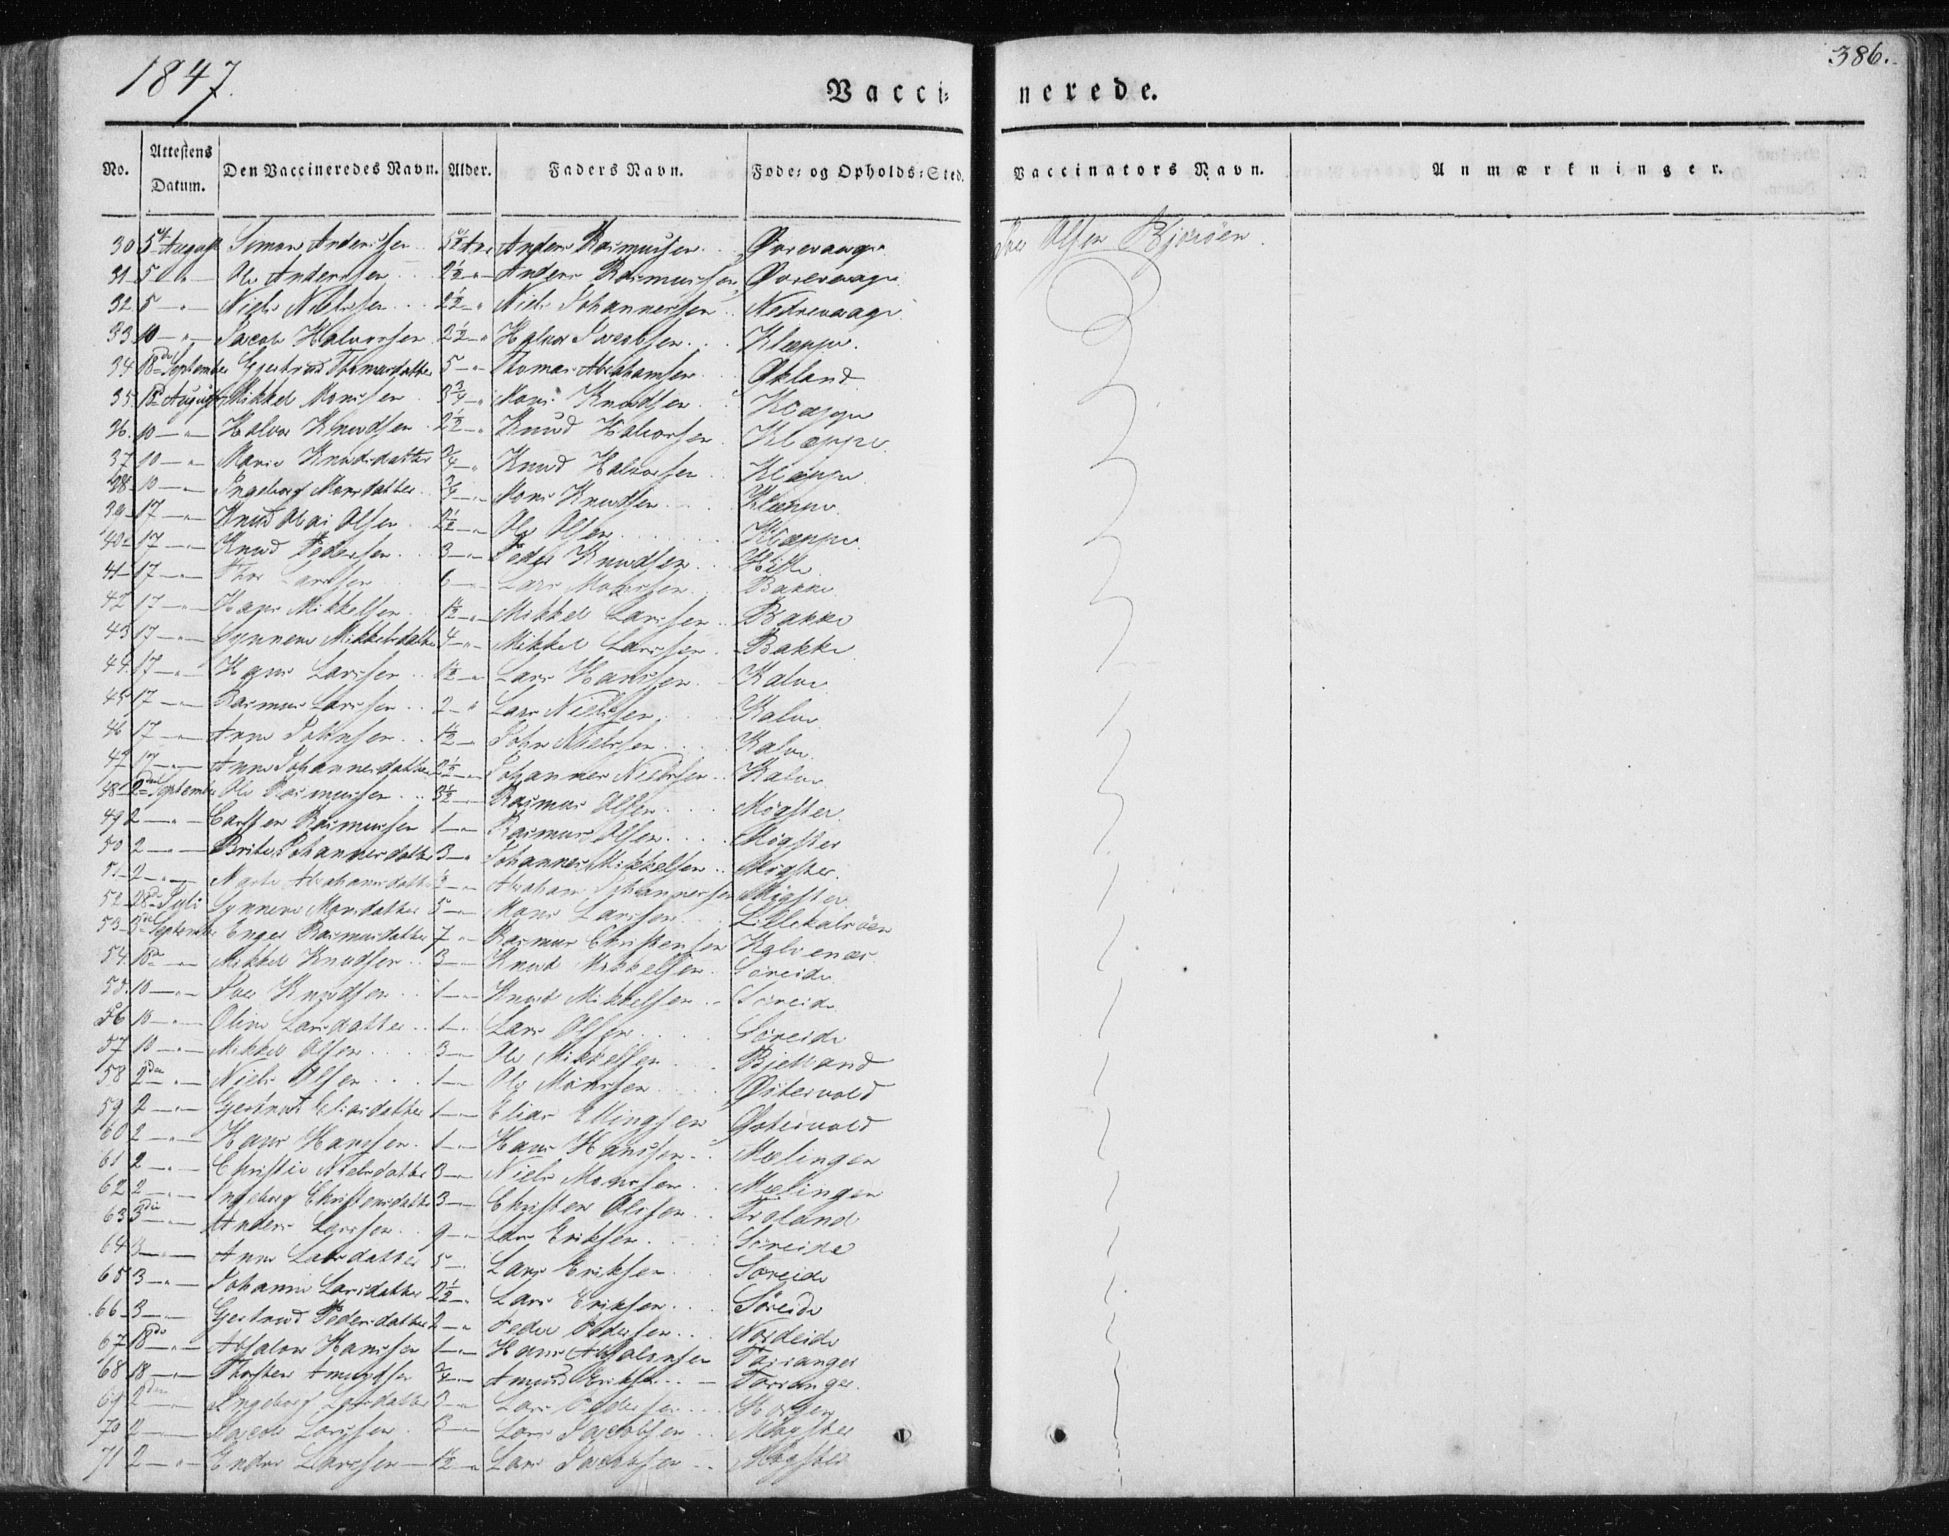 1847.
386.
Vacci= nerede.
No. Attestens Datum. Den Vaccineredes Navn. Alder. Faders Navn. Føde= og Opholds=Sted. Vaccinators Navn. Anmærkninger.
30 5te August Simon Anderssen Anders Rasmussen Øvrevaage Olsen Bjorøen.
31 5 Ole Anderssen 2½ Anders Rasmussen Øvrevaage
32 5 Niels Nielssen 2½ Niels Johannessen Nedrevaage
33 10 Jacob Halvorsen 2½ Halvor Jacobsen Kleppe.
34 18de September Gjertrud Thomasdatter 5 Thomas Abrahamsen Økland
35 August Mikkel Monssen Mons Knudsen Kleppe
36. 10 Halvor Knudsen 2½ Knud Halvorsen Kleppe.
37 10 Marie Knudsdatter ¾ Knud Halvorsen Kleppe
38 10 Ingeborg Monsdatter ¾ Mons Knudsen Kleppe
39 17 Knud Olai Olsen Ole Olsen Kleppe.
40 17 Knud Pedersen 3 Peder Knudsen
41 17 Larssen 6 Lars Monssen Bakke
42 17 Hans Mikkelsen 1½ Mikkel Larssen Bakke
43 17 Synneve Mikkelsdatter 4 Mikkel Larssen Bakke
44. 17 Hans Larssen 1½ Lars Hanssen Kalve
45 17 Rasmus Larssen 2 Lars Nielssen Kalve
46 17 Anne Johnsen 1½ John Nielssen Kalve
47 17 Anne Johannesdatter Johannes Nielssen Kalve
48 2den September Ole Rasmussen 3½ Rasmus Olsen Møgster
49 2 Carsten Rasmussen 1 Rasmus Olsen Møgster
50 2 Brite Johannesdatter 3 Johannes Mikkelsen Møgster
51 2 Abrahamsdatter Abraham Johannessen Møgster
52 28de Juli Synneve Monsdatter 5 Mons Larssen Lillekalsøen
53 September Enger Rasmusdatter 7 Rasmus Christensen Kalvenæs
54. 10de Mikkel Knudsen 3 Knud Mikkelsen Søreide
55. 10 Iver Knudsen 1 Knud Mikkelsen Søreide
56 10 Oline Larsdatter 1 Lars Olsen Søreide
57 10 Mikkel Olsen 3 Ole Mikkelsen Bjelland
58 2den Niels Olsen 1 Ole Monssen Østervold
59 2 Gjertrud Eliasdatter 1 Elias Ellingsen Østervold
60 2 Hans Hanssen 1 Hans Hanssen Mølingen
61 2 Christie Nielsdatter 3 Niels Monssen Mølingen
62 2 Ingeborg Christensdatter 3 Christen Olssen Troland
63 3die Anders Larssen 9 Lars Eriksen Søreide
64 3 Anne Larsdatter 5 Lars Eriksen Søreide
65 3 Johanne Larsdatter 2½ Lars Eriksen Søreide
66 3 Gjertrud Pedersdatter 2 Peder Pedersen Nordeide
67 18de Absalon Hanssen 1 Hans Absalonsen Toranger
68 18 Thorsten Amundsen ¾ Amund Eriksen Toranger.
69 2den Ingeborg Larsdatter 3 Lars Pedersen
70 2 Jacob Larssen 3 Lars Jacobsen Møgster
71 2 Endre Larssen 1½ Lars Jacobsen Møgster